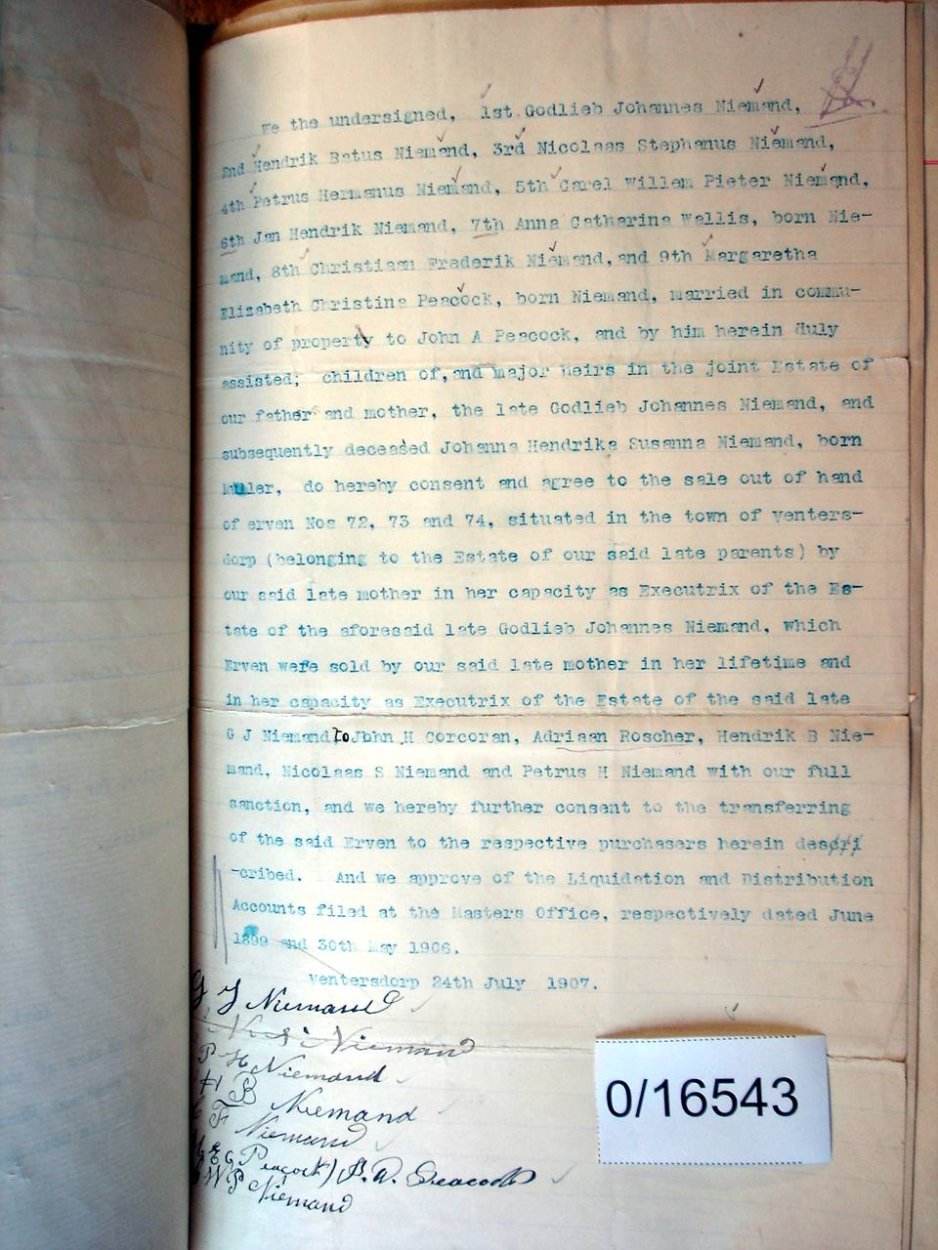 We the undersigned, 1st Godlieb Johannes Niemand,
2nd Hendrik Batus Niemand, 3rd Nicolaas Stephanus Niemand,
4th Petrus Hermanus Niemand, 5th Carel Willem Pieter Niemand,
6th Jan Hendrik Niemand, 7th Anna Catharina Wallis, born Nie-
mand, 8th Christiaan Frederik Niemand, and 9th Margaretha
Elizabeth Christina Peacock, born Niemand, married in commu-
nity of property to John A Peacock, and by him herein duly
assisted; children of, and major heirs in the joint Estate of
our father and mother, the late Godlieb Johannes Niemand, and
subsequently deceased Johanna Hendrika Susanna Niemand, born
Muller, do hereby consent and agree to the sale out of hand
of erven Nos 72, 73 and 74, situated in the town of Venters-
dorp (belonging to the Estate of our said late parents) by
our said late mother in her capacity as Executrix of the Es-
tate of the aforesaid late Godlieb Johannes Niemand, which
Erven were sold by our said late mother in her lifetime and
in her capacity as Executrix of the Estate of the said late
G J Niemand to John H Corcoran, Adriaan Roscher, Hendrik B Nie-
mand, Nicolaas S Niemand and Petrus H Niemand with our full
sanction, and we hereby further consent to the transferring
of the said Erven to the respective purchasers herein des
-cribed. And we approve of the Liquidation and Distribution
Accounts filed at the Masters Office, respectively dated June
1899 and 30th May 1906.
Ventersdorp 24th July 1907.
G J Niemand
Niemand
P H Niemand
H B Niemand
F Niemand
E C Peacock J. A. Peacock
W P Niemand
0/16543